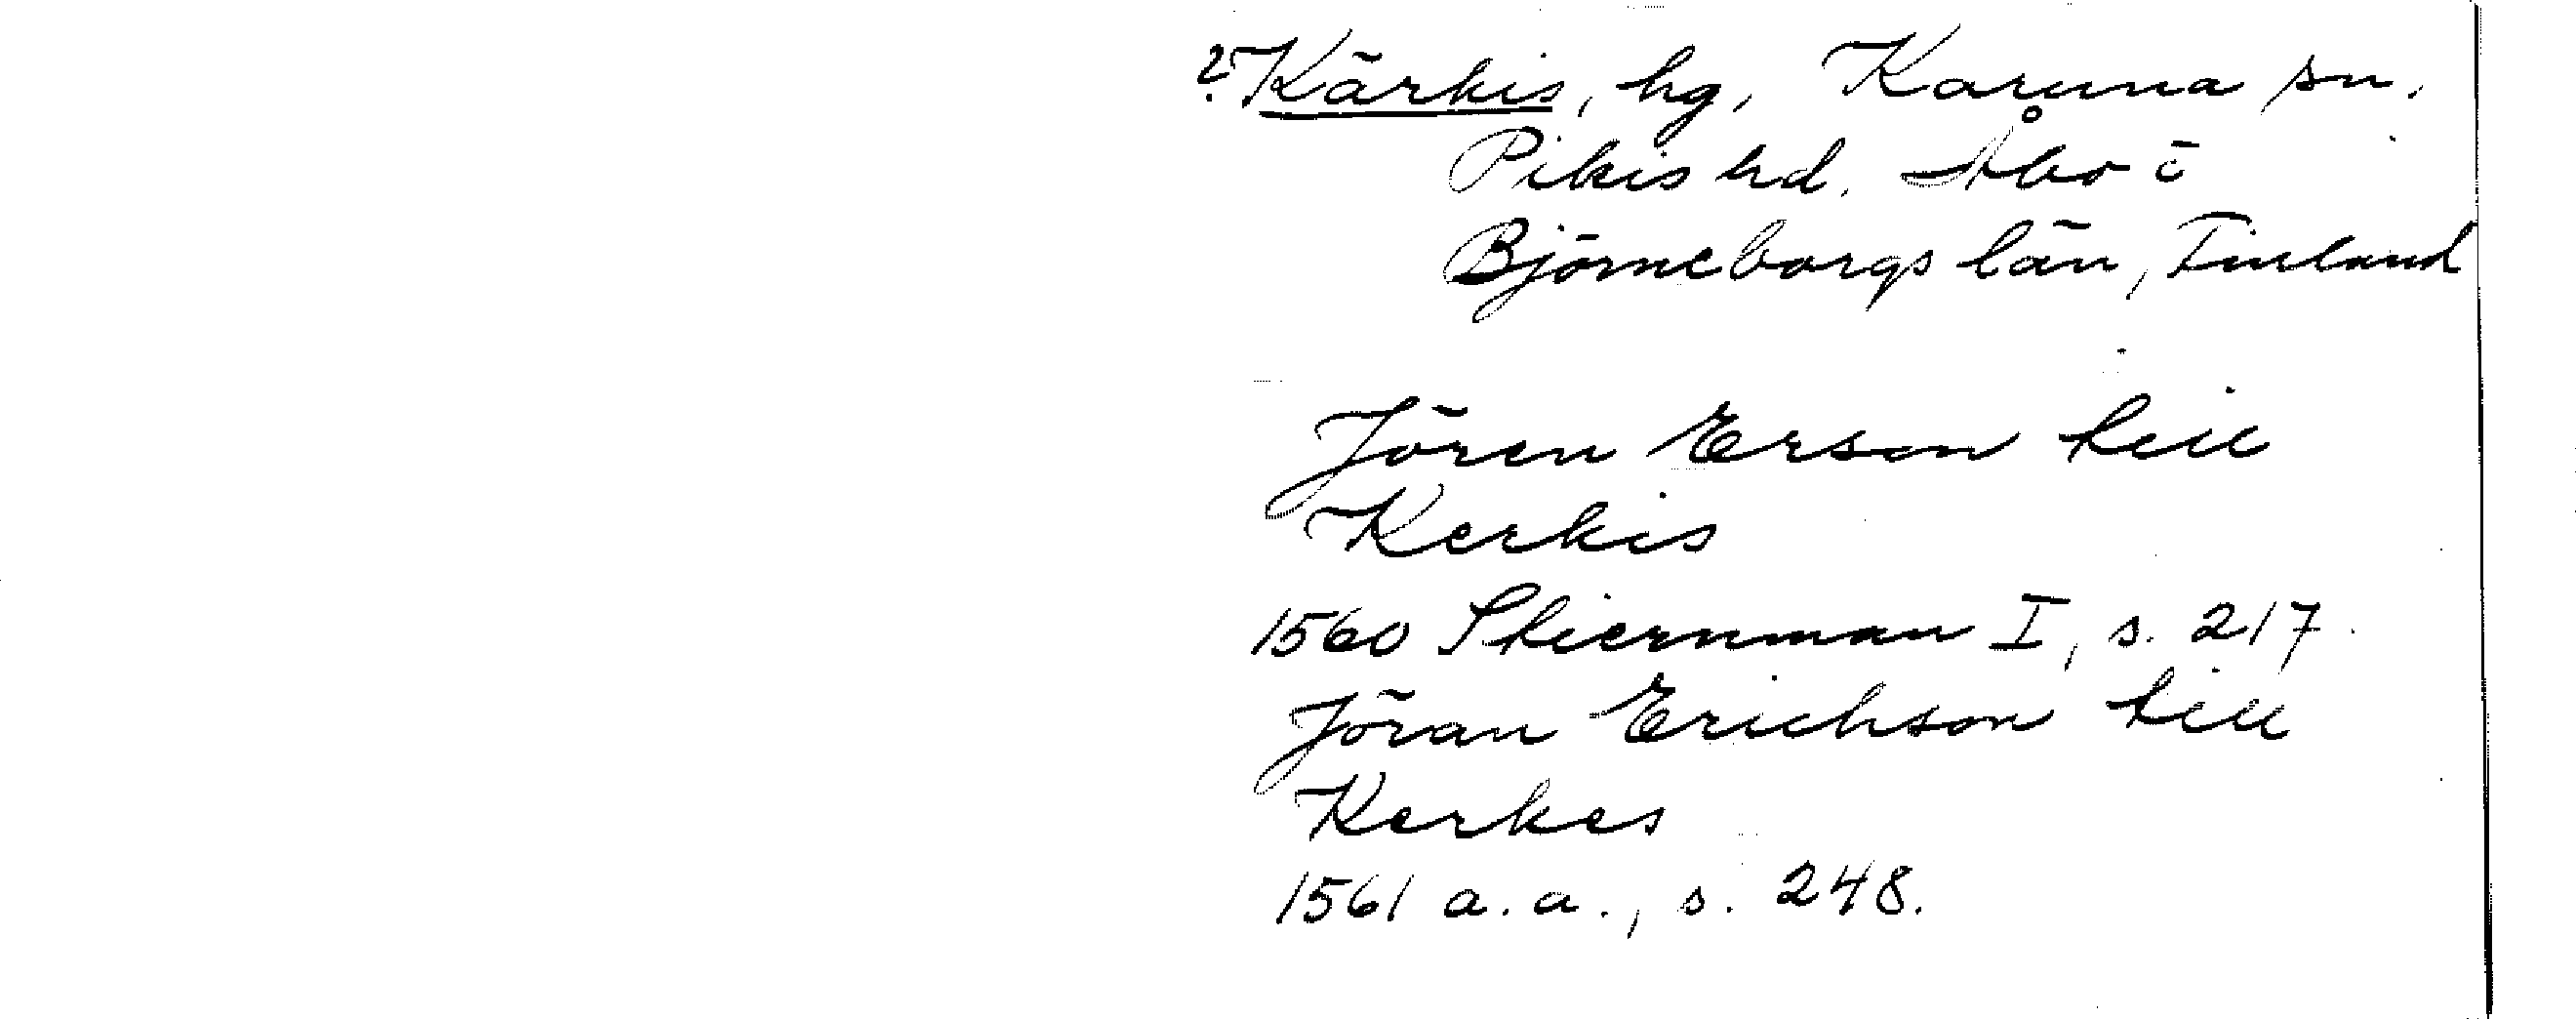 ? Kärkis, hg, Karuna sn.
Pikis hd. Åbo o
Björneborgs län, Finland
Jören Erson till
Kerkis
1560 Stiernman I, s. 217.
Jöran Erichson till
Kerkes
1561 a.a., s. 248.